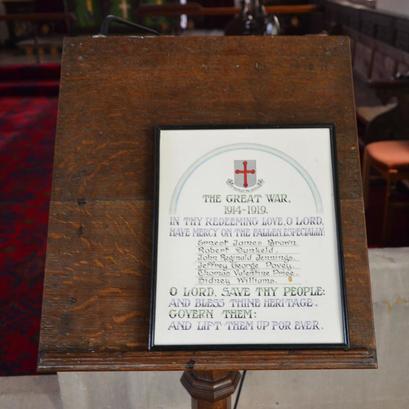 THE GREAT WAR,
1914-1919.
IN THY REDEEMING LOVE, O LORD,
HAVE MERCY ON THE FALLEN, ESPECIALLY:
Ernest James Brown.
Robert Dunkeld.
John Reginald Jennings.
Jeffrey George Povey.
Thomas Valentine Prige.
Sidney Williams.
O LORD, SAVE THY PEOPLE:
AND BLESS THINE HERITAGE.
GOVERN THEM:
AND LIFT THEM UP FOR EVER.